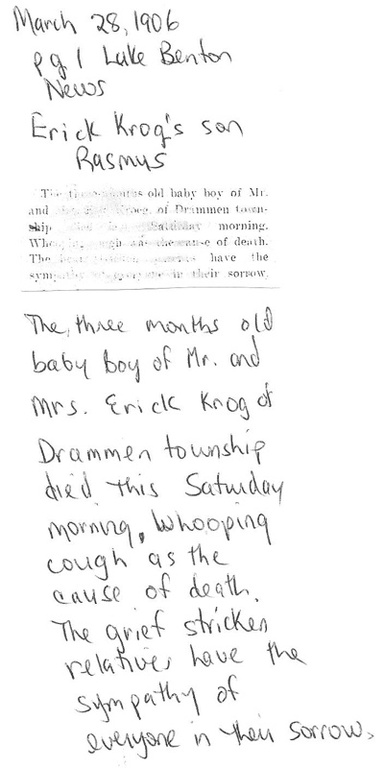 March 28, 1906
pg 1 Lake Benton
News
Erick Krog's son
Rasmus
The three months old baby boy of Mr.
and Kroeg, of Drammen town-
ship Saturday morning.
the cause of death.
The have the
sympathy in their sorrow.
The three months old
baby boy of Mr. and
Mrs. Erick Krog of
Drammen township
died this Saturday
morning, Whooping
cough as the
cause of death.
The grief stricken
relatives have the
sympathy of
everyone in their sorrow.